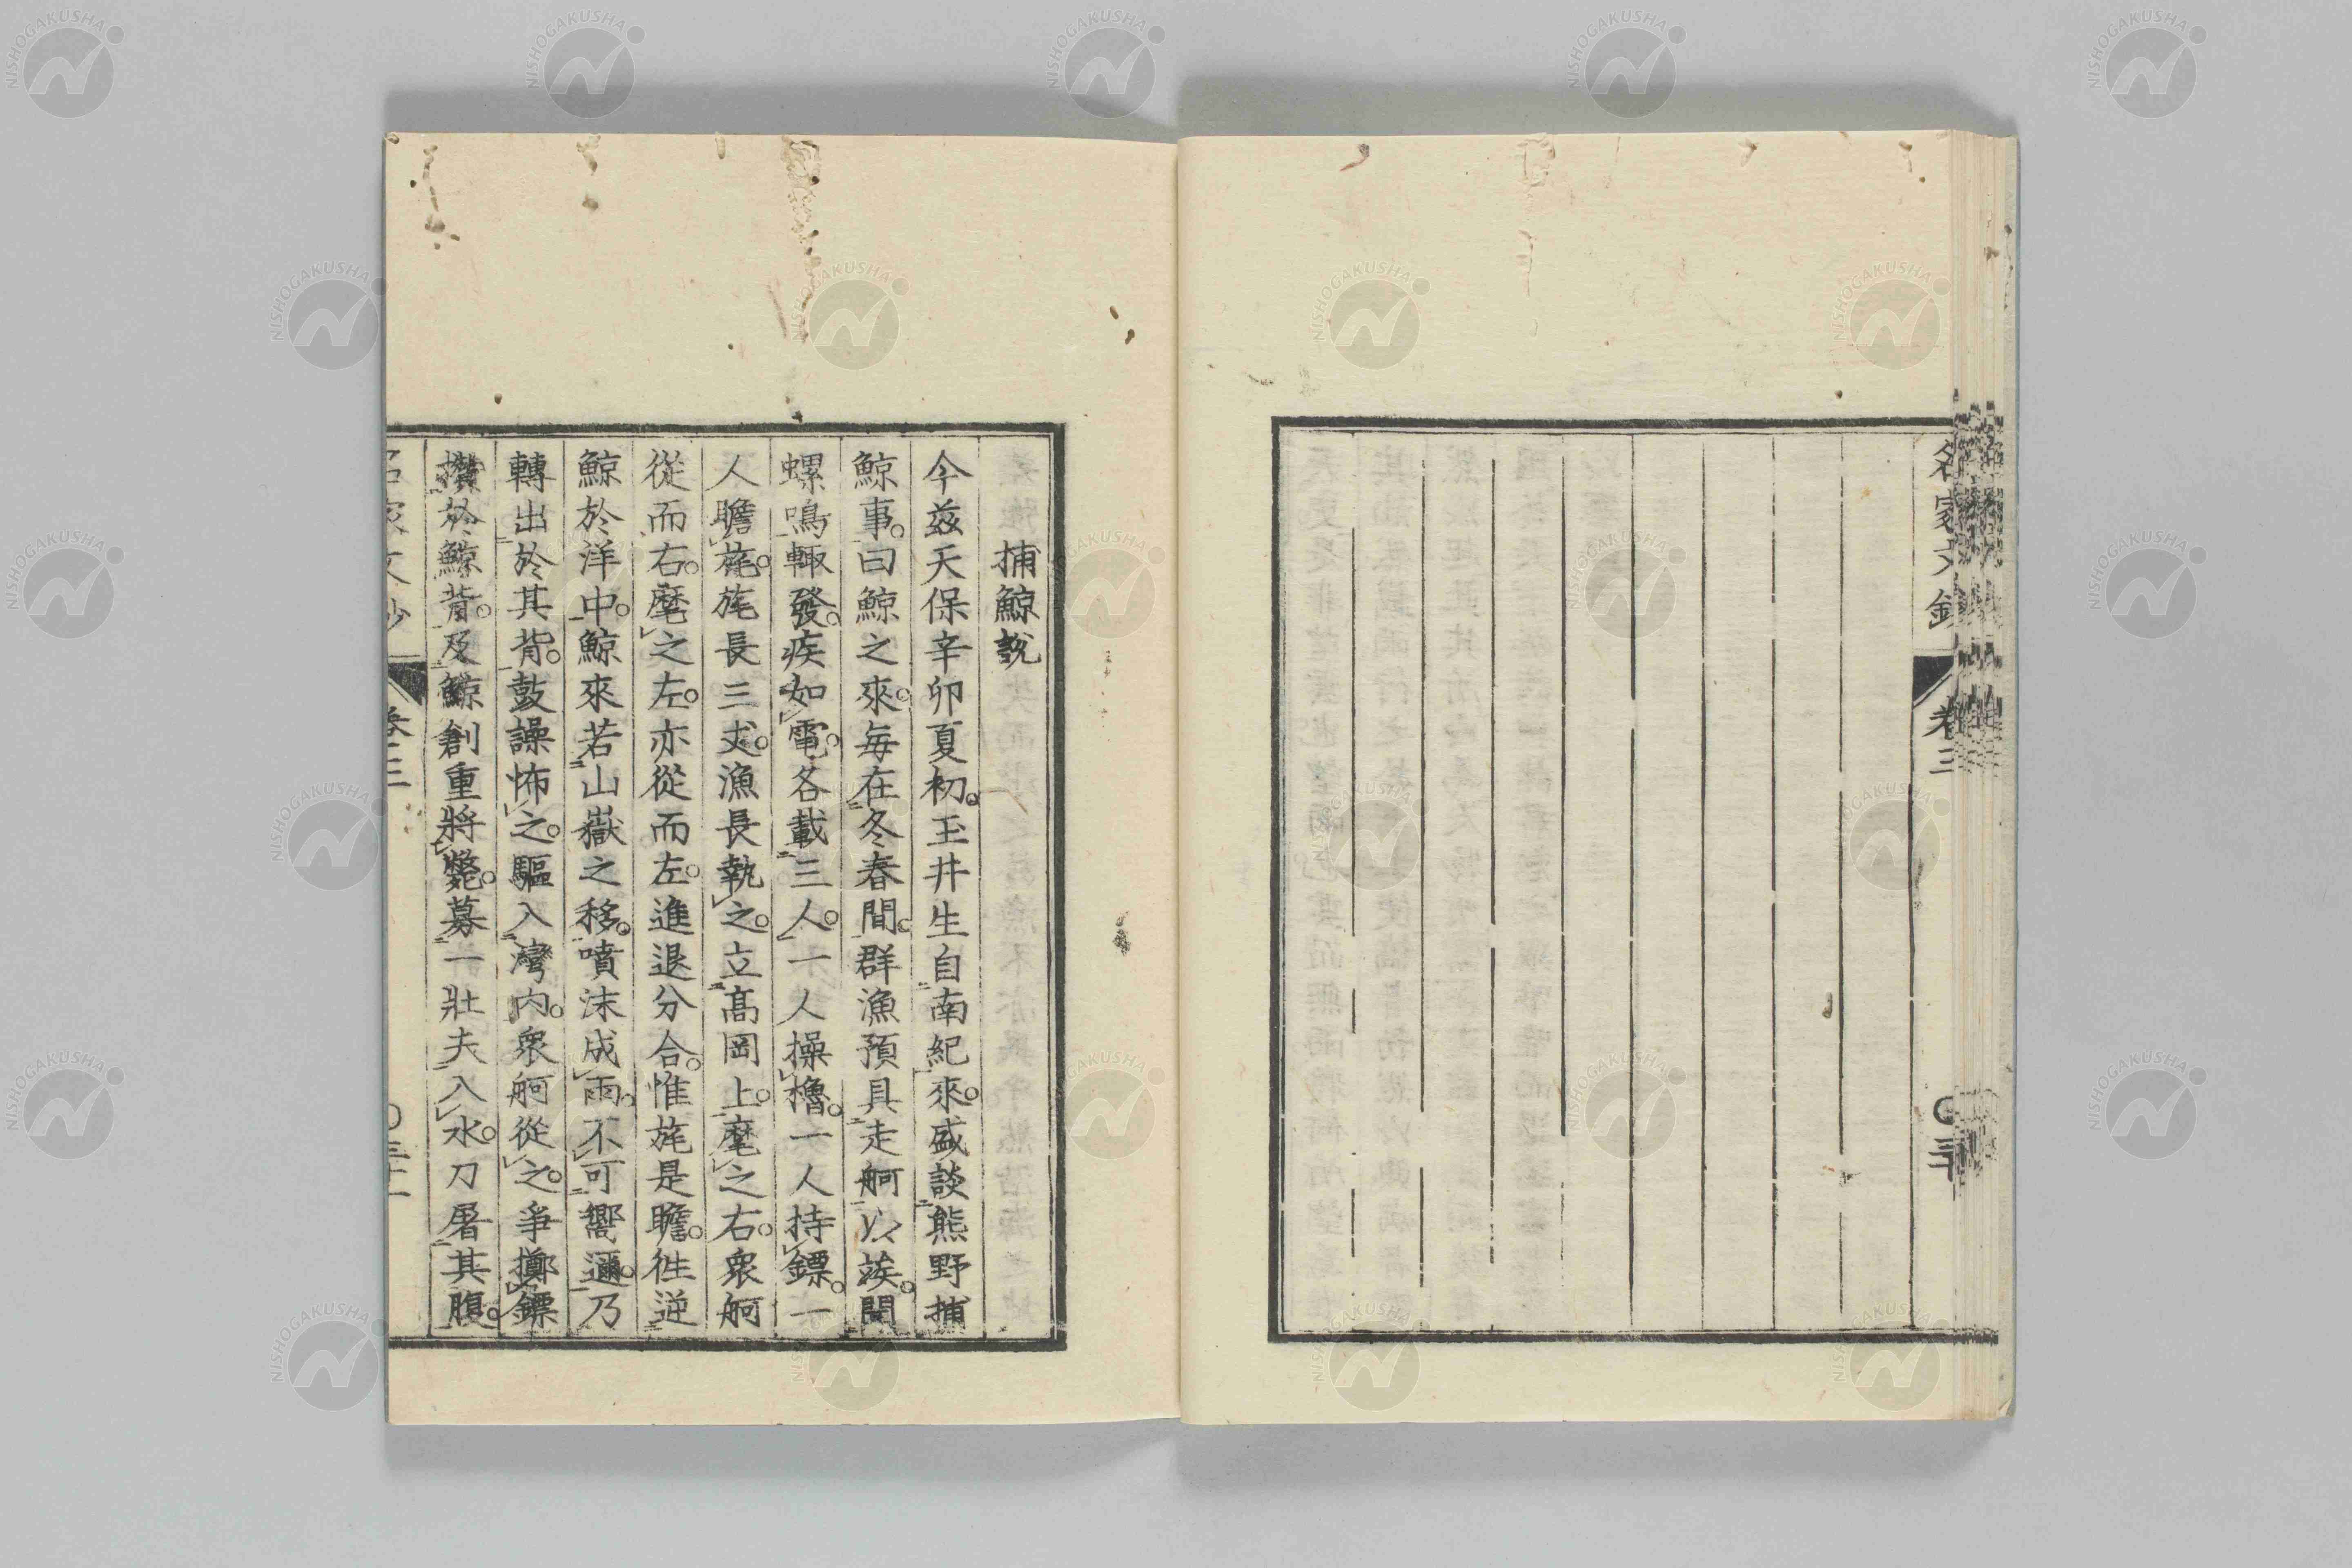 名家文鈔
卷三
捕鯨說
今茲天保辛卯夏初。玉井生自南紀來。盛談熊野捕
鯨事。曰鯨之來。每在冬春間。群漁預具走舸以俟。聞
螺鳴輒發。疾如電。各載三人。一人操櫓。一人持鏢。一
人瞻旄。旄長三丈。漁長執之。立高岡上。麾之右。衆舸
從而右。麾之左。亦從而左。進退分合。惟旄是瞻。徃逆
鯨於洋中。鯨來若山嶽之移。噴沫成雨。不可嚮邇。乃
轉出於其背。鼓譟怖之。驅入灣內。衆舸從之。爭擲鏢
攢於鯨背。及鯨創重將斃。募一壯夫入水。刀屠其腹。
NISHOGAKUSHA